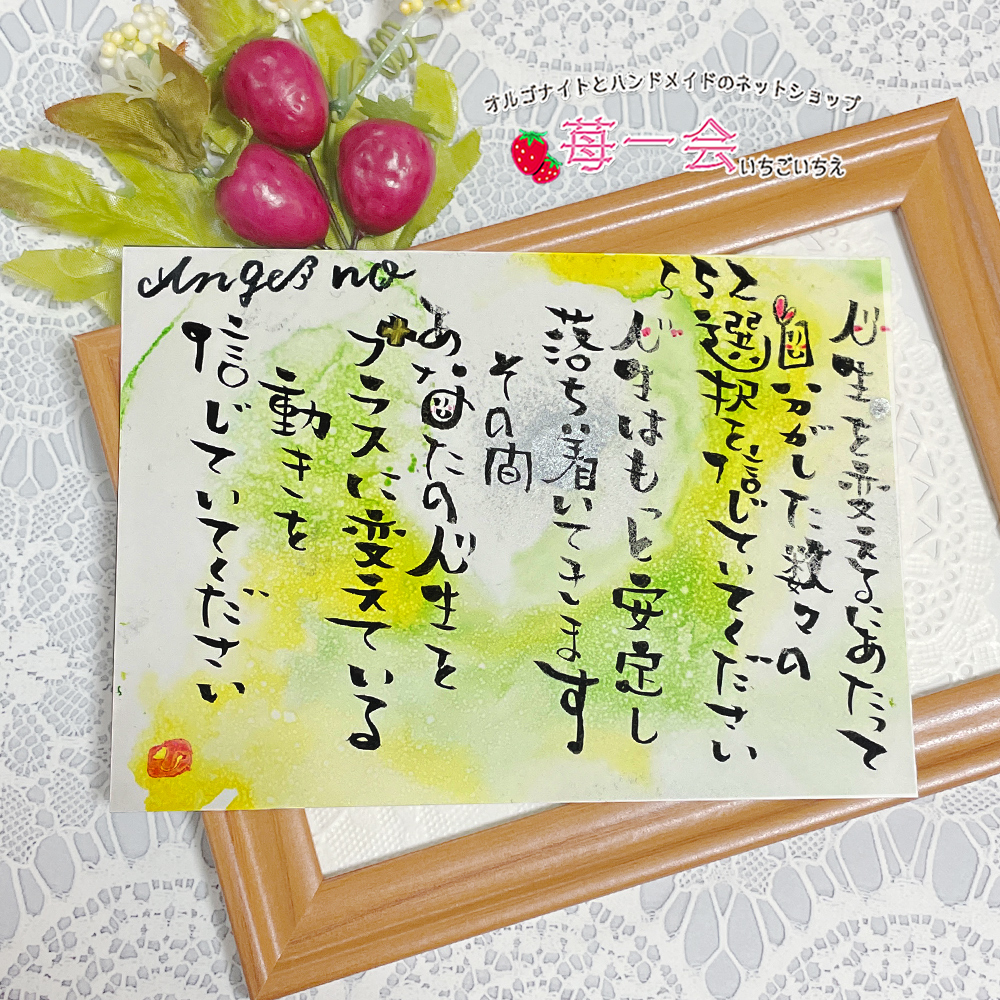 オルゴナイトとハンドメイドのネットショップ
苺一会 いちごいちえ
Angel no 552
人生を変えるにあたって
自分がした数々の
選択を信じていてください
人生はもっと安定し
落ち着いてきます
その間
あなたの人生を
プラスに変えている
動きを
信じていてください